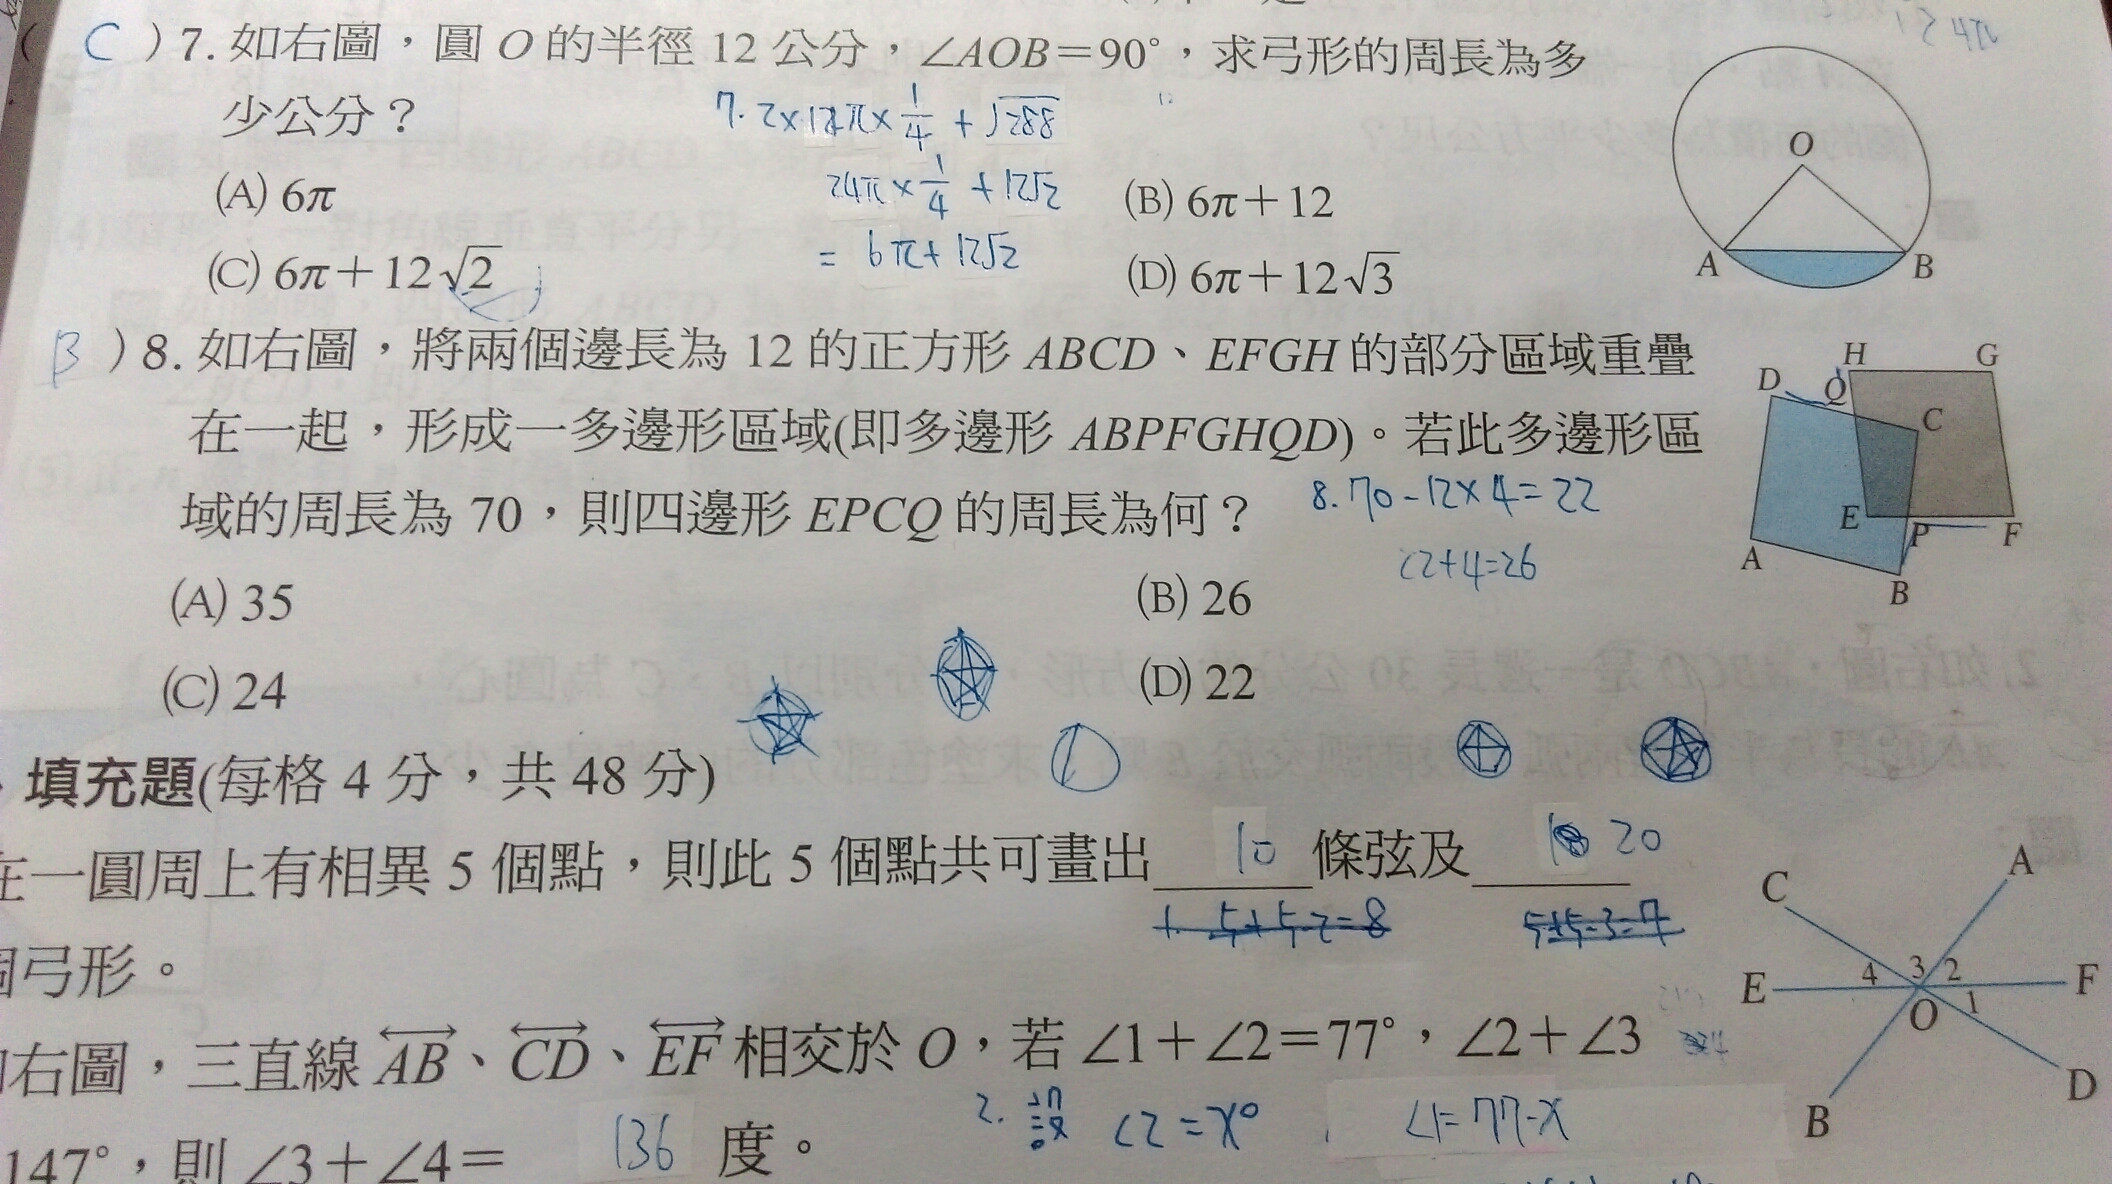 ( C ) 7. 如右圖，圓 O 的半徑 12 公分，∠AOB＝90°，求弓形的周長為多
少公分？
7. 2×12π×1/4 + √288
24π×1/4 + 12√2
= 6π+12√2
(A) 6π
(B) 6π＋12
(C) 6π＋12√2
(D) 6π＋12√3
O
A
B
B ) 8. 如右圖，將兩個邊長為 12 的正方形 ABCD、EFGH 的部分區域重疊
在一起，形成一多邊形區域(即多邊形 ABPFGHQD)。若此多邊形區
域的周長為 70，則四邊形 EPCQ 的周長為何？
8. 70-12×4=22
22+4=26
(A) 35
(B) 26
(C) 24
(D) 22
H
G
D
Q
C
E
P
F
A
B
填充題(每格 4 分，共 48 分)
在一圓周上有相異 5 個點，則此 5 個點共可畫出 10 條弦及 20
1. 5+5-2=8
5+5-3=7
個弓形。
如右圖，三直線 AB、CD、EF 相交於 O，若 ∠1＋∠2＝77°，∠2＋∠3
147°，則 ∠3＋∠4＝ 136 度。
2. 設 ∠2=x°
∠1=77-x
C
A
E
4
3
2
F
O
1
B
D